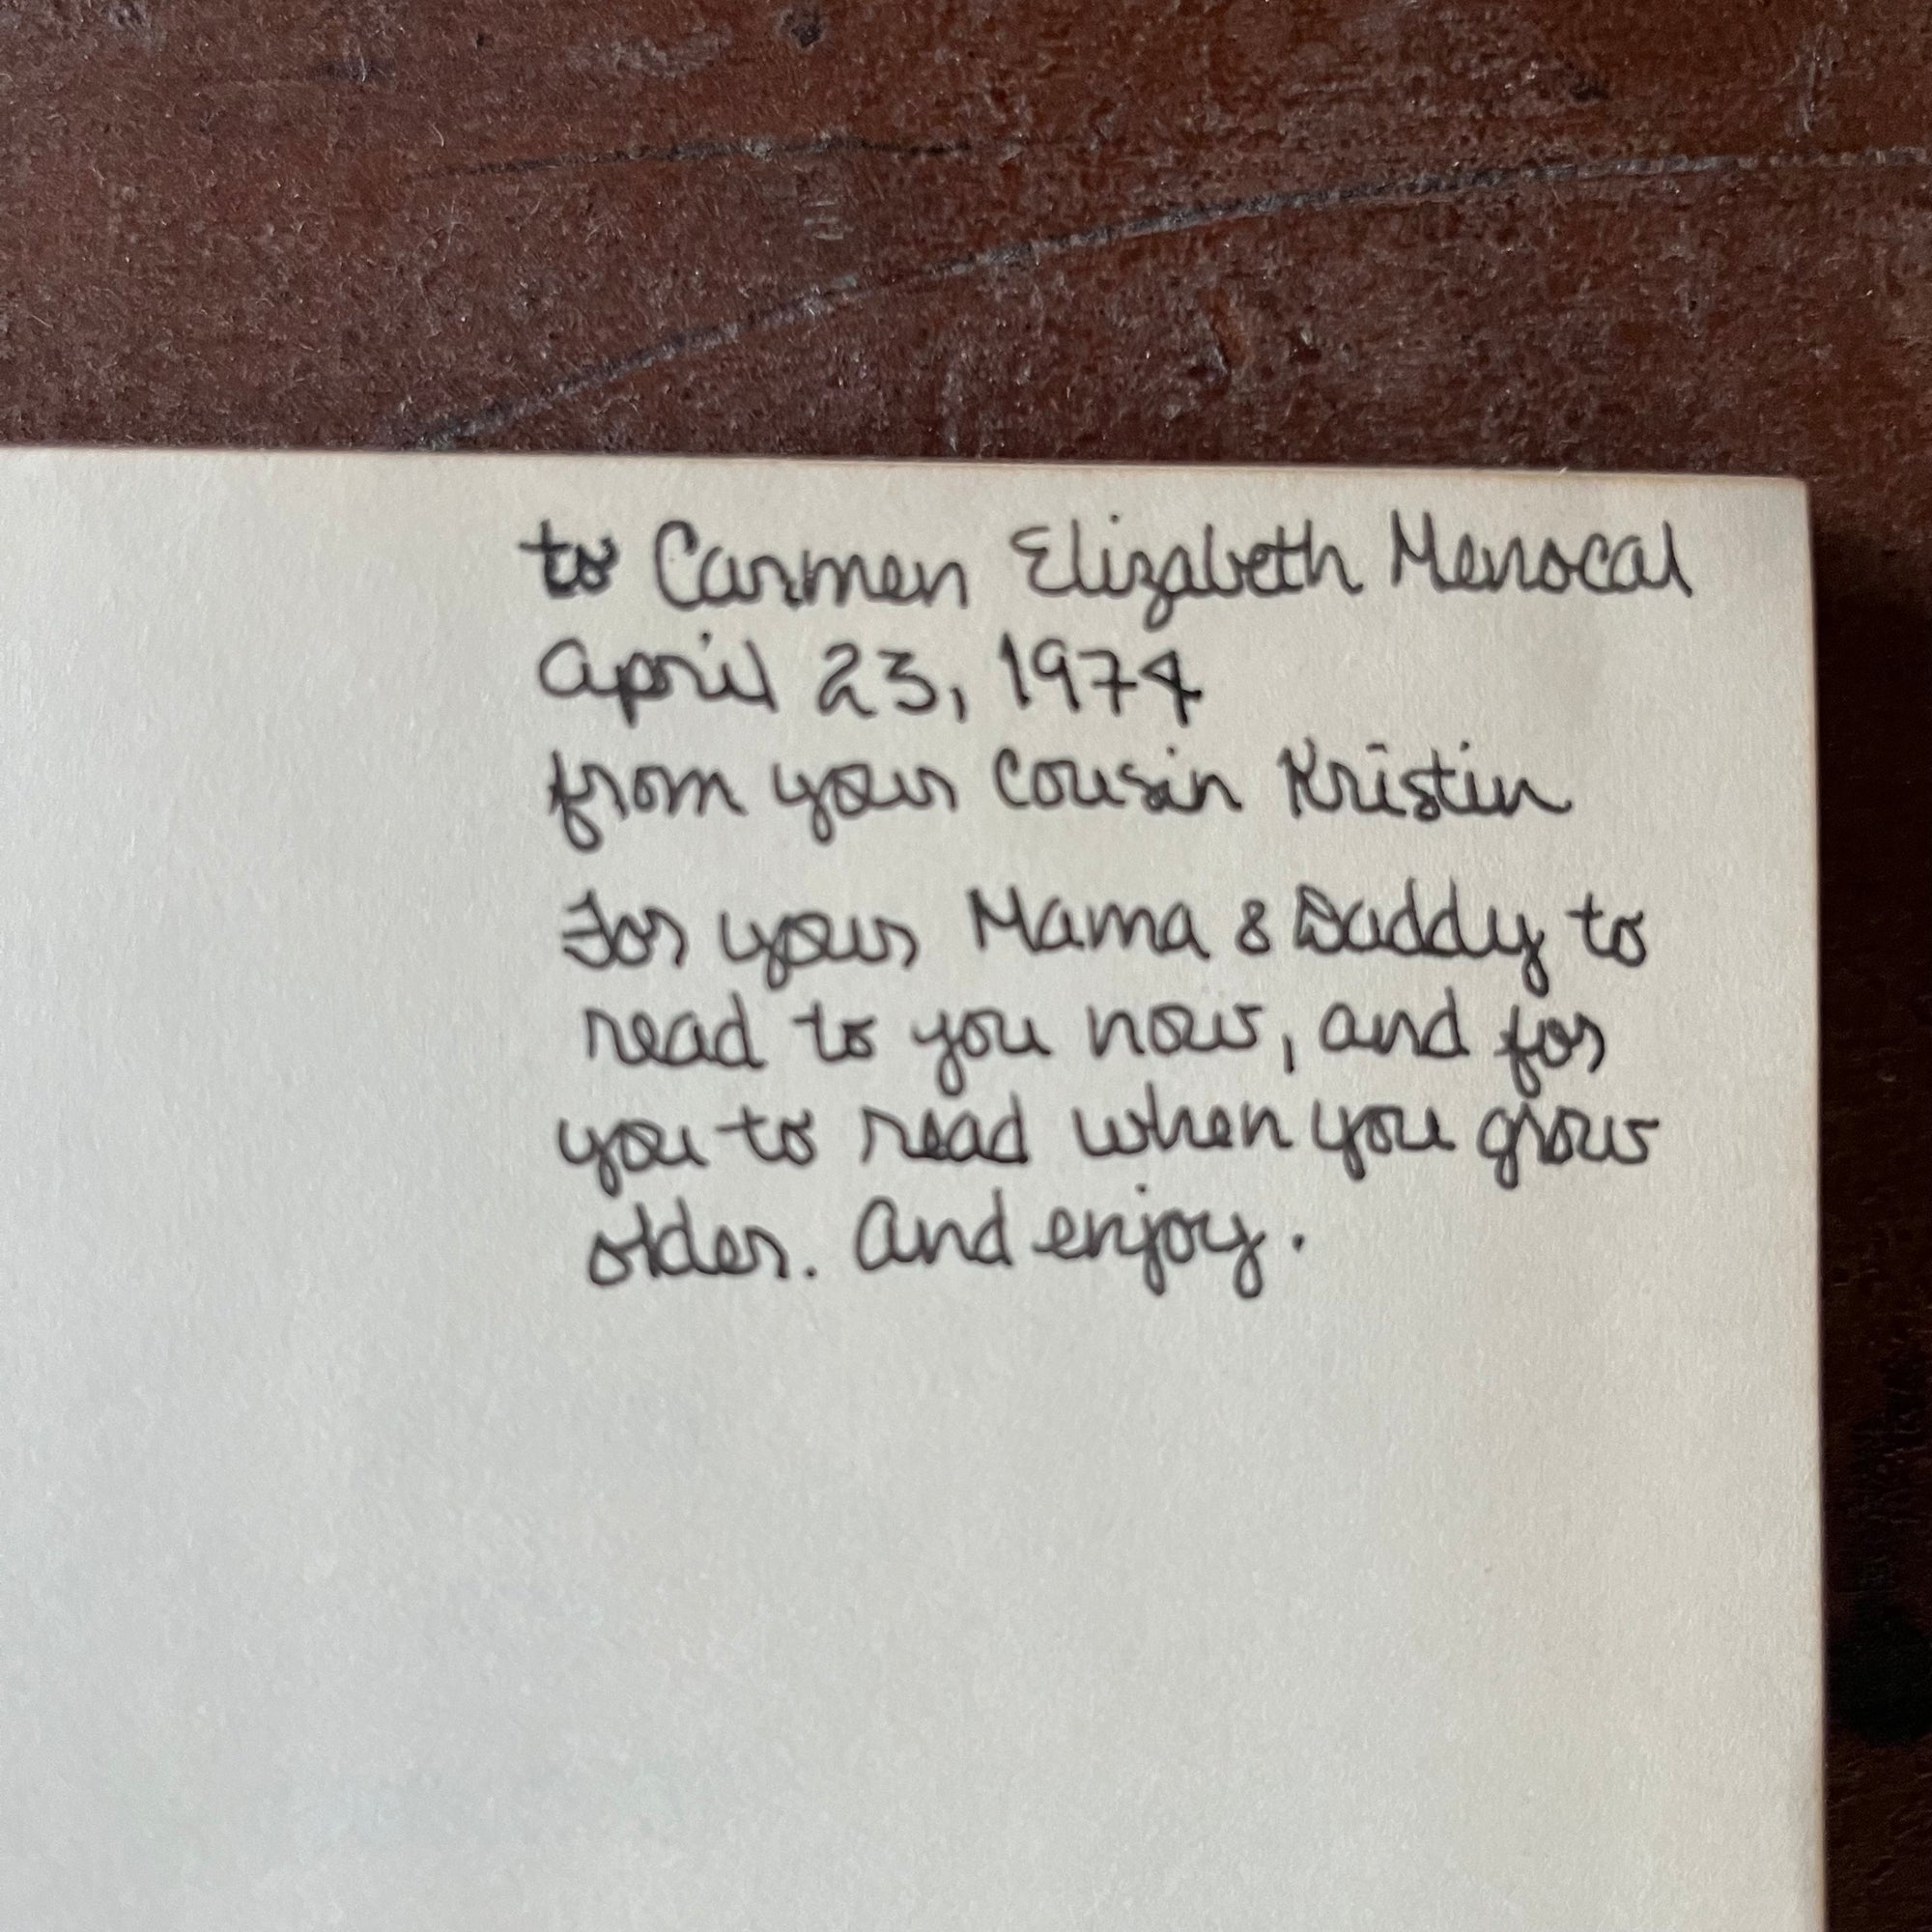 to Carmen Elizabeth Menocal
April 23, 1974
from your cousin Kristin
For your Mama & Daddy to
read to you now, and for
you to read when you grow
older. And enjoy.